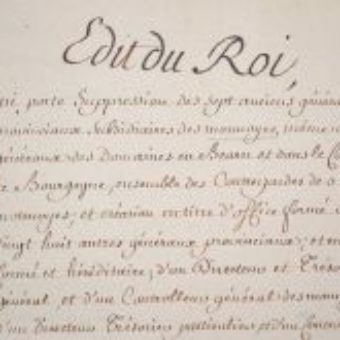 Edit du Roi,
porte Suppression des sept anciens généra
provinciaux subsidiaires des monnayes, même
généraux des Domaines en Bearn et dans le C
Bourgogne, ensemble des Contregardes de
monnayes, et création en titre d'office formé
vingt huit autres généraux provinciaux; et en
formé et héréditaire, d'un Directeur et Tréso
général, et d'un Controlleur général des monn
d'un Directeur Trésorier particulier et d'un